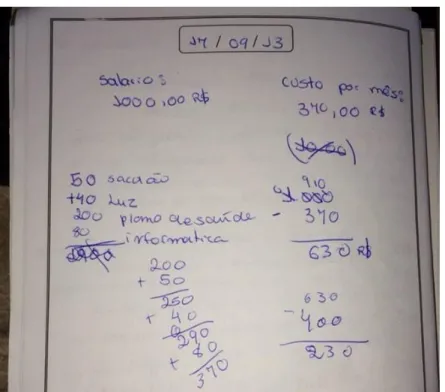 17/09/13
Salario:
1000,00 R$
Custo por mês:
370,00 R$
50 sacolão
+40 Luz
200 plano de saúde
80 informatica
200
+ 50
250
+ 40
290
+ 80
370
910
1000
- 370
630 R$
630
- 400
230